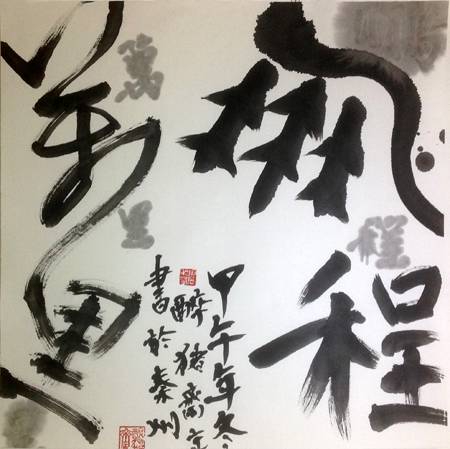 鵬程
萬里
程
萬
里
甲午年冬
醉猪齋主
書於秦州